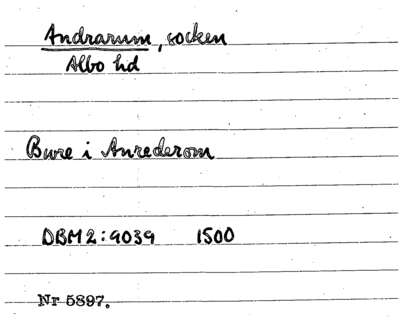 Andrarum, socken
Albo hd
Bwre i Anrederom
DBM2:9039 1500
Nr 5897.